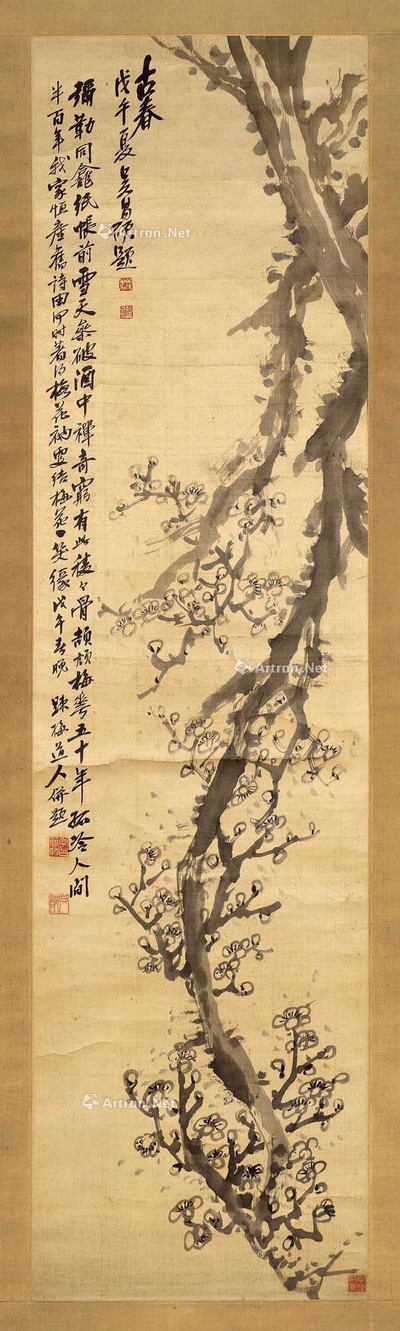 古春
戊午夏吳昌碩題
彌勒同龕紙帳前雪天無破酒中禪奇窮有此棱棱骨頡頏梅花五十年孤冷人間
半百年我家恒產舊詩田何時著得梅花衲要結梅花一笑緣戊午春晚 道人併題
Artron.Net
Artron.Net
Artron.Net